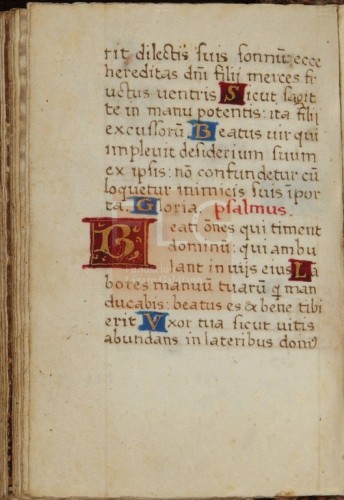 rit dilectis suis somnũ: ecce
hereditas dñi filij merces fr
uctus ventris Sicut sagit
te in manu potentis: ita filij
excussorũ Beatus uir qui
impleuit desiderium suum
ex ipsis: nõ confundetur cũ
loquetur inimicis suis ĩ por
ta. Gloria. psalmus.
Beati õnes qui timent
dominũ: qui ambu
lant in uijs eius La
bores manuũ tuarũ q̃ man
ducabis: beatus es & bene tibi
erit Vxor tua sicut uitis
abundans in lateribus dom9